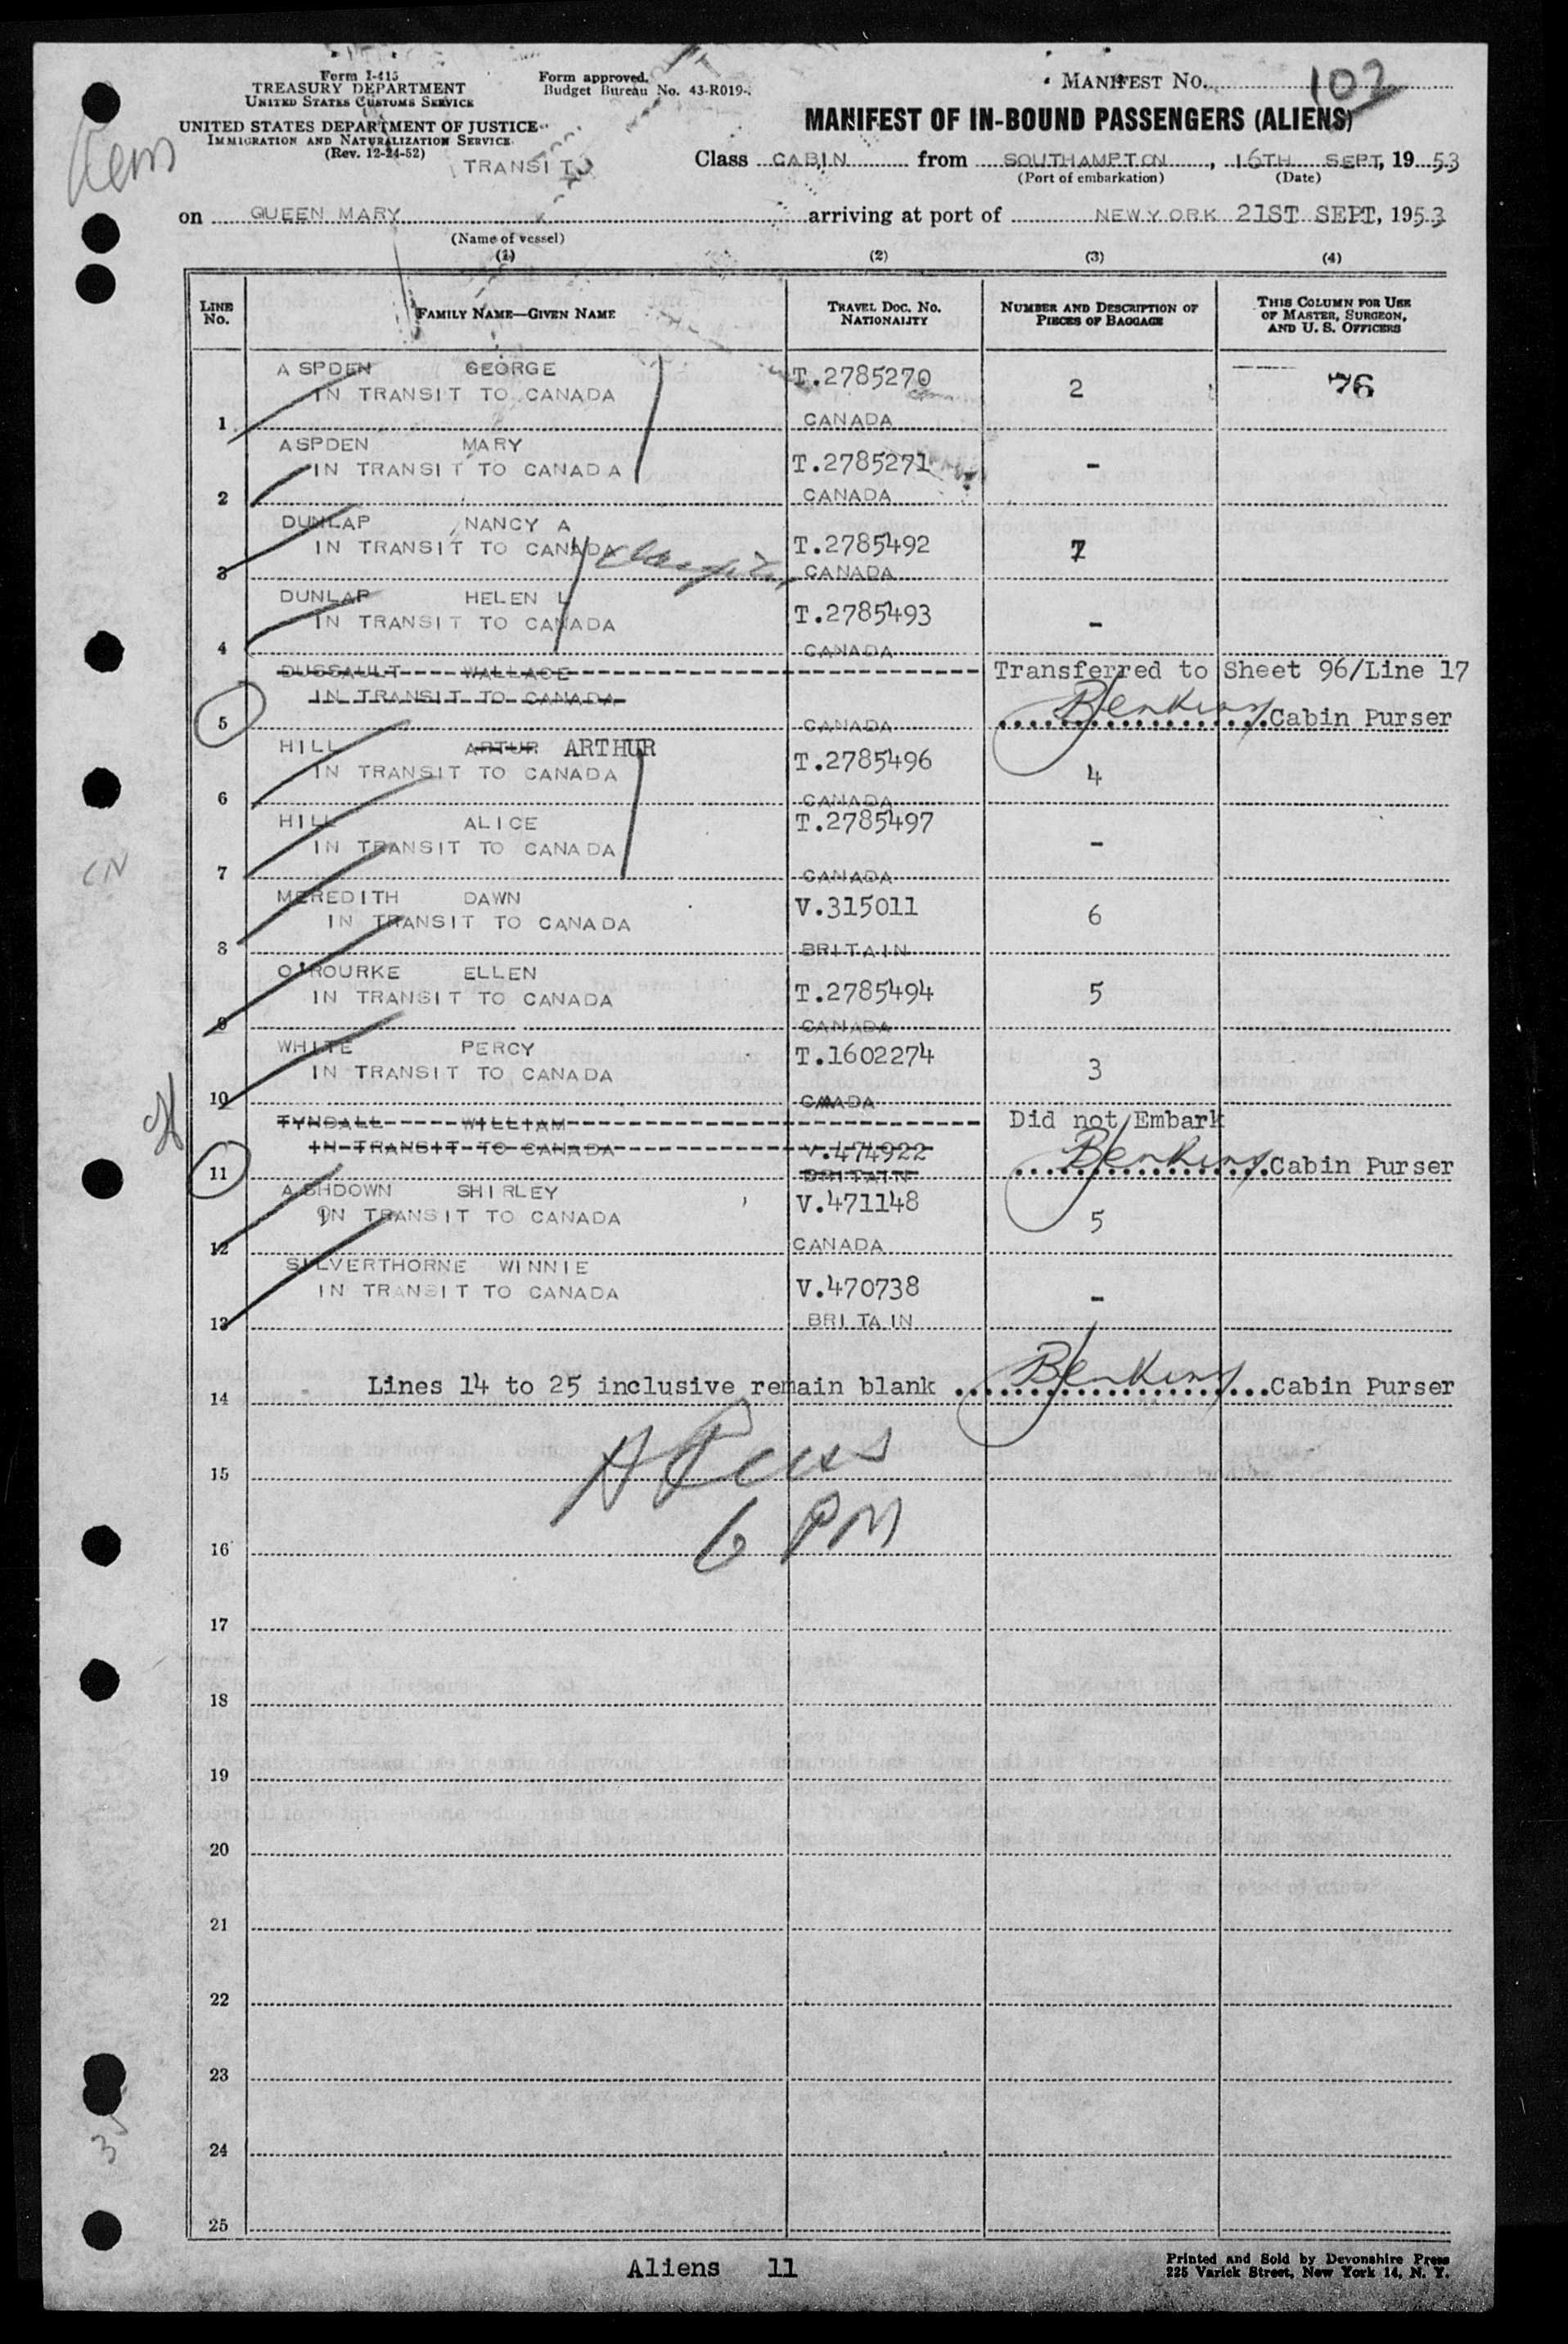 Form I-415
TREASURY DEPARTMENT
UNITED STATES CUSTOMS SERVICE
UNITED STATES DEPARTMENT OF JUSTICE
IMMIGRATION AND NATURALIZATION SERVICE
(Rev. 12-24-52)
Form approved.
Budget Bureau No. 43-R019-
TRANSIT
MANIFEST NO. 102
MANIFEST OF IN-BOUND PASSENGERS (ALIENS)
Class CABIN from SOUTHAMPTON, 16TH SEPT, 1953
(Port of embarkation) (Date)
on QUEEN MARY arriving at port of NEW YORK 21ST SEPT, 1953
(Name of vessel)
(1) (2) (3) (4)
LINE NO. FAMILY NAME—GIVEN NAME TRAVEL DOC. NO. NATIONALITY NUMBER AND DESCRIPTION OF PIECES OF BAGGAGE THIS COLUMN FOR USE OF MASTER, SURGEON, AND U. S. OFFICERS
ASPDEN GEORGE T.2785270 2 76
IN TRANSIT TO CANADA
1 CANADA
ASPDEN MARY T.2785271 -
IN TRANSIT TO CANADA
2 CANADA
DUNLAP NANCY A T.2785492 7
IN TRANSIT TO CANADA
3 CANADA
DUNLAP HELEN L T.2785493 -
IN TRANSIT TO CANADA
4 CANADA
DUSSAULT WALLACE Transferred to Sheet 96/Line 17
IN TRANSIT TO CANADA
5 CANADA BJenkins Cabin Purser
HILL ARTUR ARTHUR T.2785496 4
IN TRANSIT TO CANADA
6 CANADA
HILL ALICE T.2785497 -
IN TRANSIT TO CANADA
7 CANADA
MEREDITH DAWN V.315011 6
IN TRANSIT TO CANADA
8 BRITAIN
O'ROURKE ELLEN T.2785494 5
IN TRANSIT TO CANADA
9 CANADA
WHITE PERCY T.1602274 3
IN TRANSIT TO CANADA
10 CANADA
TYNDALL WILLIAM Did not Embark
IN TRANSIT TO CANADA V.474922
11 BRITAIN BJenkins Cabin Purser
ASHDOWN SHIRLEY V.471148 5
IN TRANSIT TO CANADA
12 CANADA
SILVERTHORNE WINNIE V.470738 -
IN TRANSIT TO CANADA
13 BRITAIN
14 Lines 14 to 25 inclusive remain blank BJenkins Cabin Purser
15
6 PM
16
17
18
19
20
21
22
23
24
25
Aliens 11
Printed and Sold by Devonshire Press
225 Varick Street, New York 14, N. Y.
CN
3